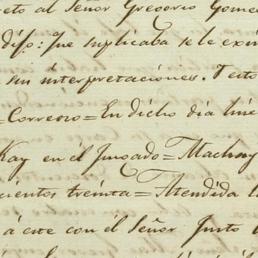 eto al Señor Gregorio Gome
dijo: Que suplicaba se le exi
sin interpretaciones. Y esto
=Correoso=En dicho dia
Kay en el Juzgado=Mackay
cientos treinta=Atendida l
á este con el Señor Justo